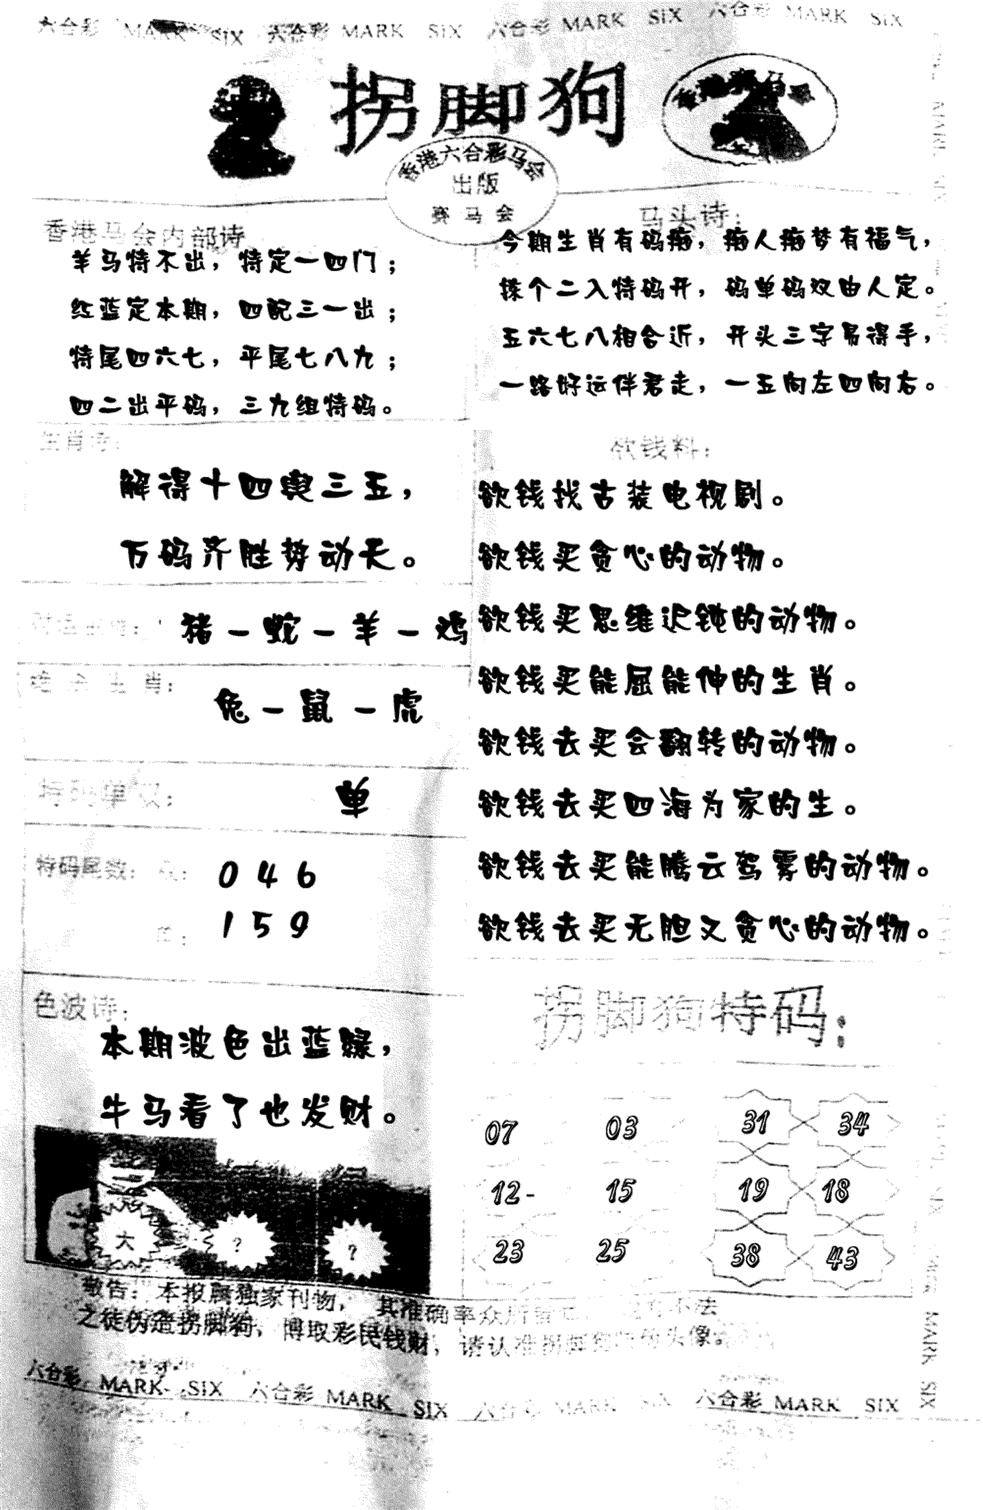 六合彩 MARK SIX 六合彩 MARK SIX 六合彩 MARK SIX 六合彩 MARK SIX
拐脚狗
香港赛马会
香港六合彩马会
出版
赛马会
香港马会内部诗
羊马特不出，特定一四门；
红蓝定本期，四配三一出；
特尾四六七，平尾七八九；
四二出平码，三九组特码。
马头诗：
今期生肖有码痴，痴人痴梦有福气，
拣个二入特码开，码单码双由人定。
五六七八相合近，开头三字易得手，
一路好运伴君走，一五向左四向右。
生肖诗：
解得十四舆三五，
万码齐胜势动天。
猪－蛇－羊－鸡
绝杀生肖：
兔－鼠－虎
特码单双：
单
特码尾数：双：
046
单：
159
色波诗：
本期波色出蓝绿，
牛马看了也发财。
大
?
?
欲钱料：
欲钱找古装电视剧。
欲钱买贪心的动物。
欲钱买思维迟钝的动物。
欲钱买能屈能伸的生肖。
欲钱去买会翻转的动物。
欲钱去买四海为家的生。
欲钱去买能腾云驾雾的动物。
欲钱去买无胆又贪心的动物。
拐脚狗特码：
07 03 31 34
12- 15 19 18
23 25 38 43
敬告：本报属独家刊物，其准确率众所
之徒伪造拐脚狗，博取彩民钱财，请认准拐脚狗 头像。
六合彩 MARK SIX 六合彩 MARK SIX 六合彩 MARK SIX 六合彩 MARK SIX
MARK SIX